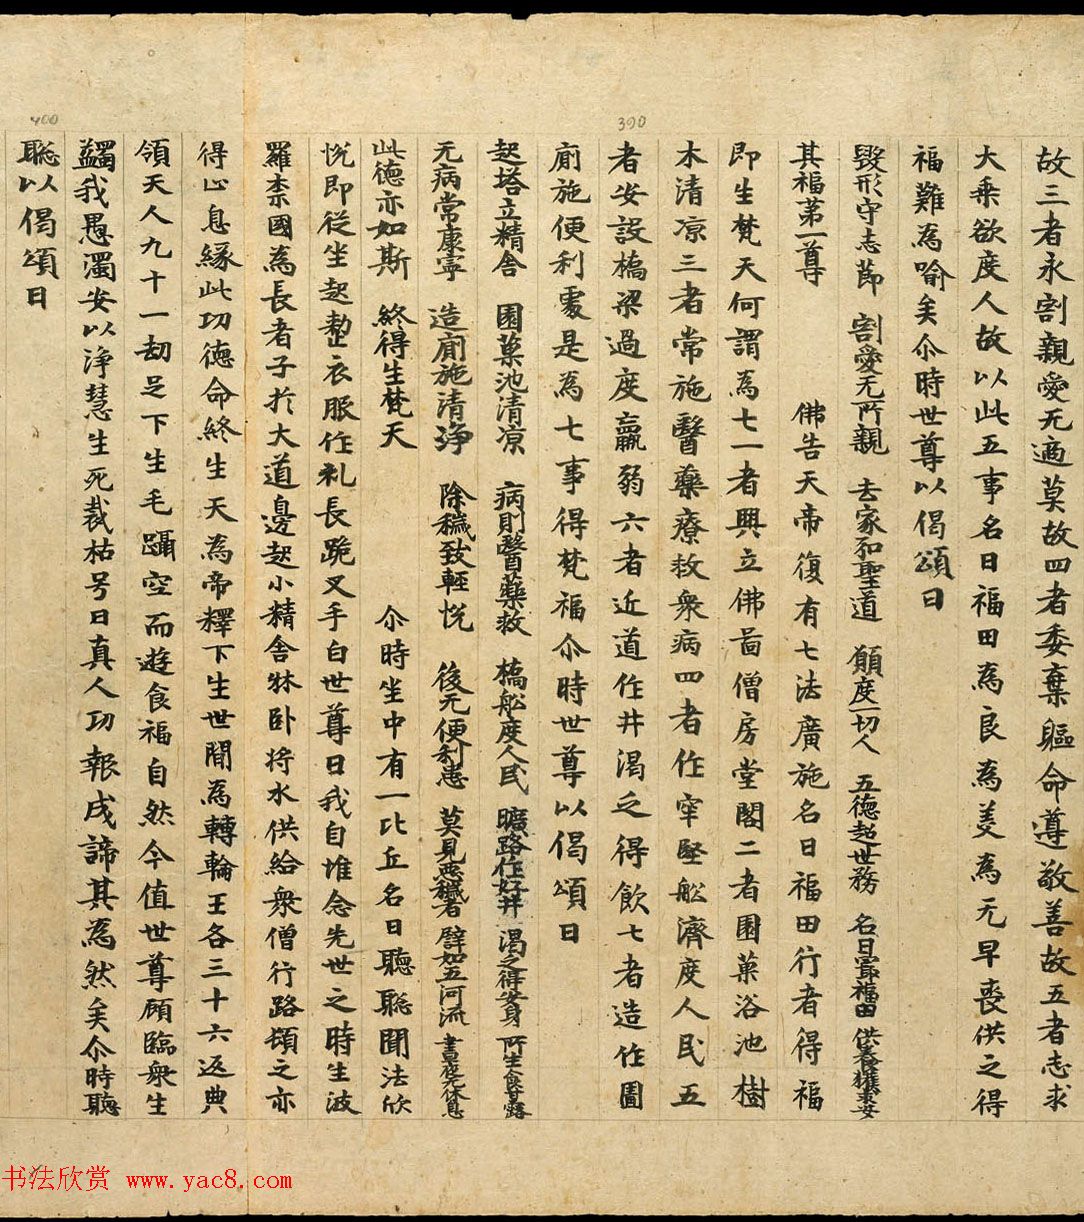 400
390
故三者永割親愛无適莫故四者委棄軀命遵敬善故五者志求
大乘欲度人故以此五事名曰福田為良為美為无早喪供之得
福難為喻矣尒時世尊以偈頌曰
毀形守志莭 割愛无所親 去家和聖道 願度一切人 五德超世務 名曰最福田 供養獲永安
其福第一尊 佛告天帝復有七法廣施名曰福田行者得福
即生梵天何謂為七一者興立佛啚僧房堂閣二者園菓浴池樹
木清凉三者常施醫藥療救衆病四者作牢堅舩濟度人民五
者安設橋梁過度羸弱六者近道作井渴乏得飲七者造作圊
廁施便利處是為七事得梵福尒時世尊以偈頌曰
起塔立精舎 園菓池清凉 病則醫藥救 橋舩度人民 曠路作好井 渴乏得安身 所生食甘露
无病常康寧 造廁施清淨 除穢致輕恱 後无便利患 莫見惡穢者 譬如五河流 晝夜无休息
此德亦如斯 終得生梵天 尒時坐中有一比丘名曰聽聡聞法欣
恱即從坐起整衣服作礼長跪叉手白世尊曰我自惟念先世之時生波
羅柰國為長者子於大道邊起小精舎牀卧将水供給衆僧行路頓之亦
得止息縁此功德命終生天為帝釋下生世閒為轉輪王各三十六返典
領天人九十一劫足下生毛躡空而遊食福自然今值世尊顧臨衆生
蠲我愚濁安以淨慧生死裁枯号曰真人功報成諦其為然矣尒時聽
聡以偈頌曰
书法欣赏 www.yac8.com